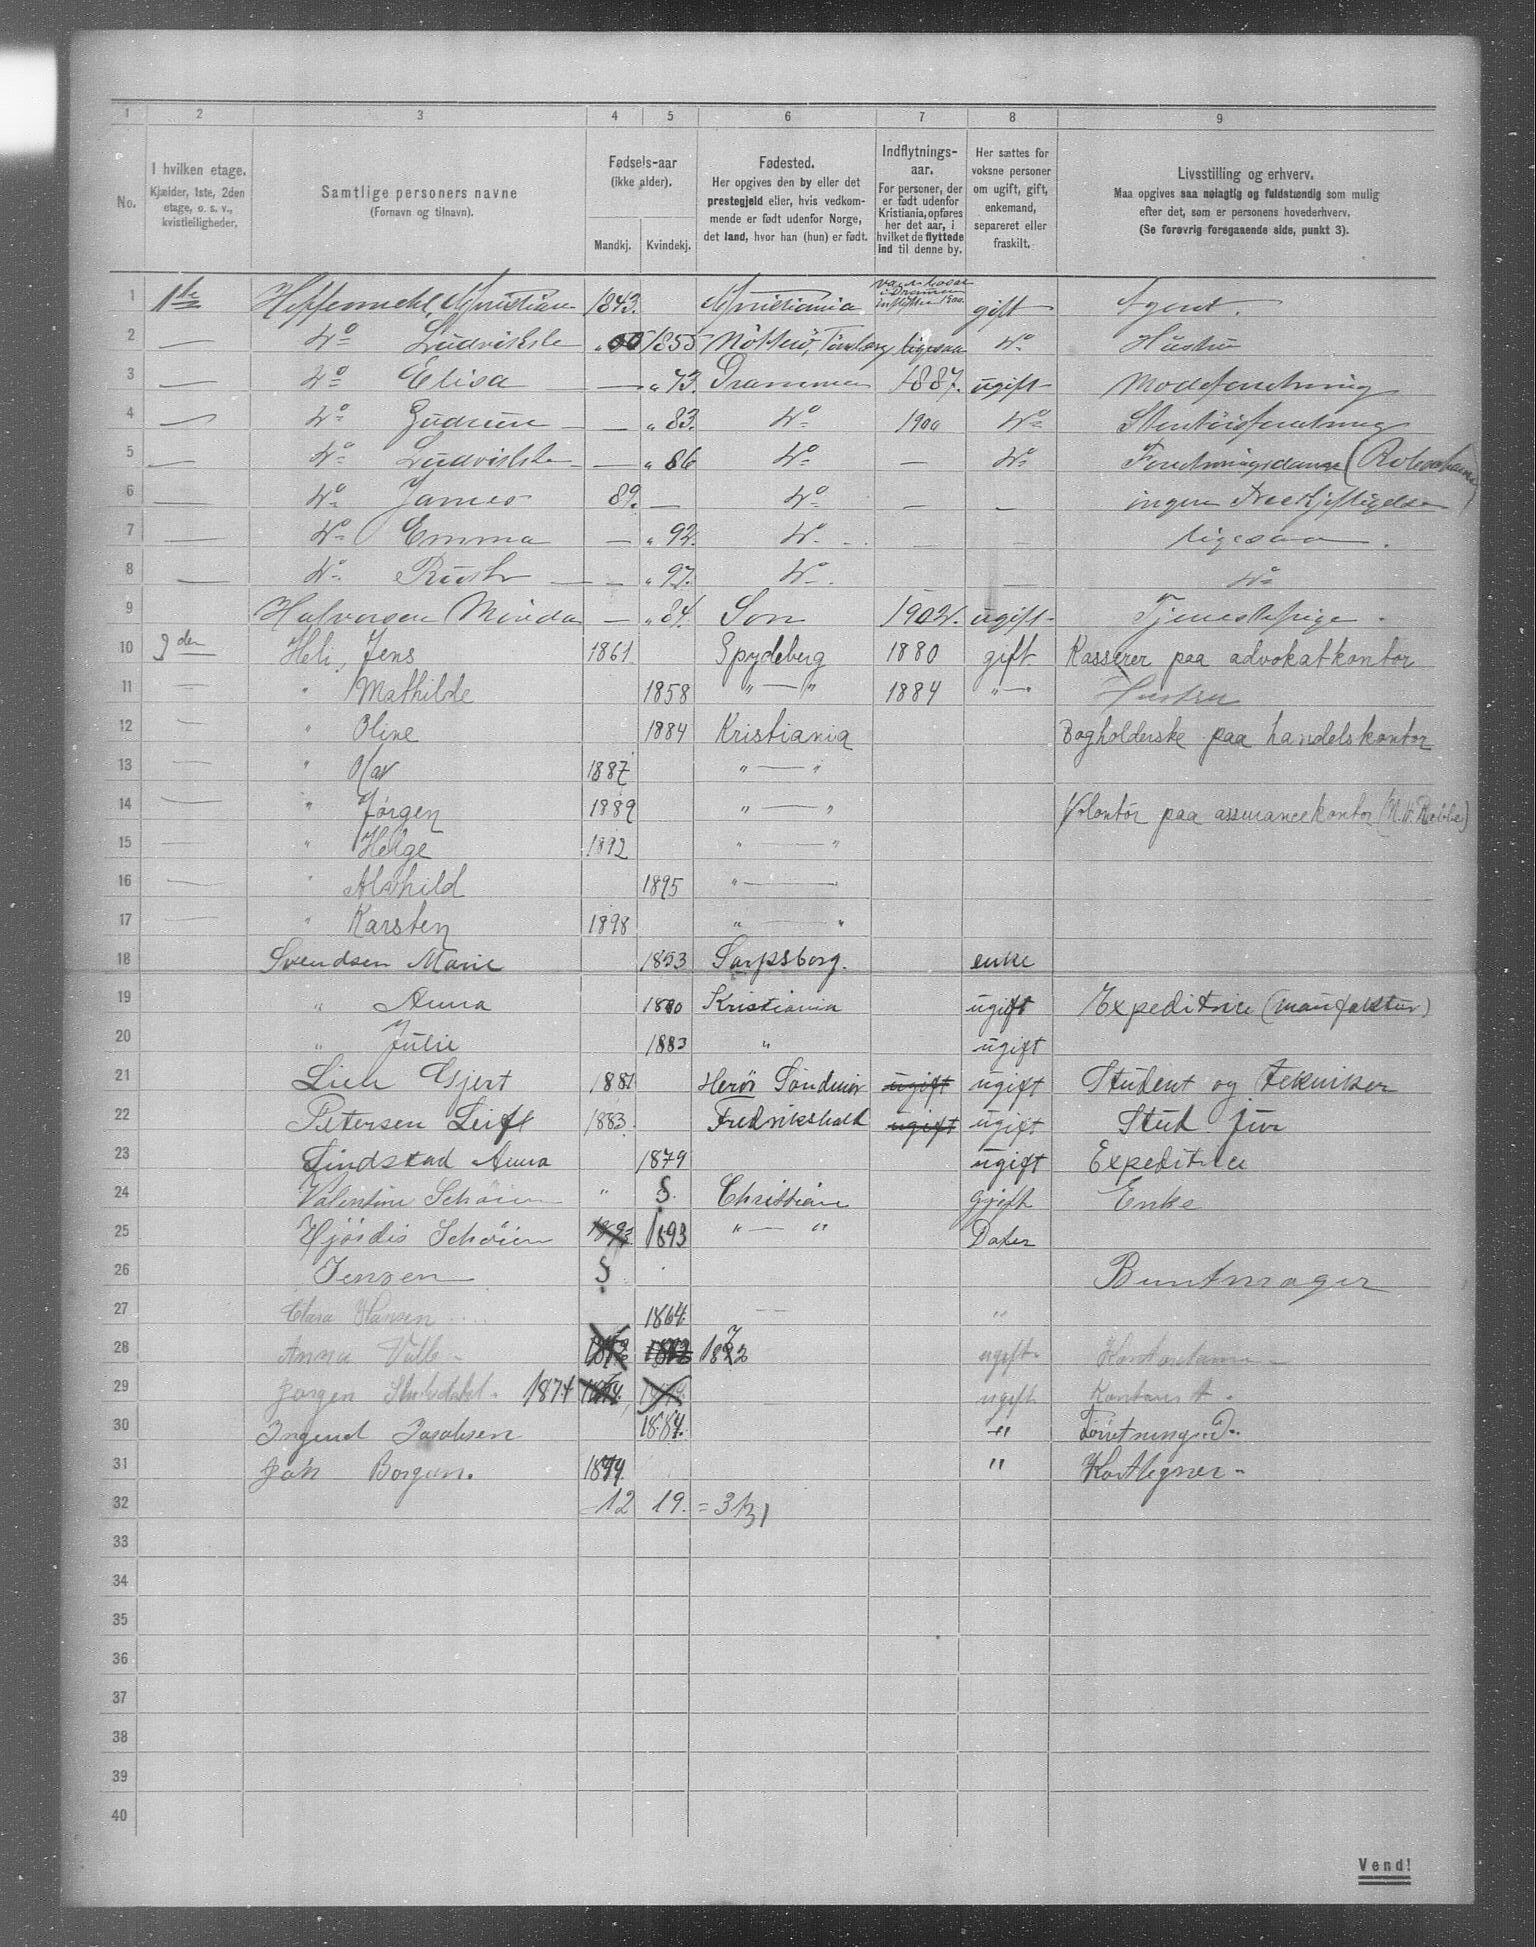 1 2 3 4 5 6 7 8 9
No.
I hvilken etage.
Kjælder, 1ste, 2den
etage, o. s. v.,
kvistleiligheder.
Samtlige personers navne
(Fornavn og tilnavn).
Fødsels-aar
(ikke alder).
Mandkj. Kvindekj.
Fødested.
Her opgives den by eller det
prestegjeld eller, hvis vedkom-
mende er født udenfor Norge,
det land, hvor han (hun) er født.
Indflytnings-
aar.
For personer, der
er født udenfor
Kristiania, opføres
her det aar, i
hvilket de flyttede
ind til denne by.
Her sættes for
voksne personer
om ugift, gift,
enkemand,
separeret eller
fraskilt.
Livsstilling og erhverv.
Maa opgives saa nøiagtig og fuldstændig som mulig
efter det, som er personens hovederhverv.
(Se forøvrig foregaaende side, punkt 3).
1 1ste Heffermehl, Christian 1843. Christiania gift Agent.
2 — Do Ludvikke 1855 Nötterö, Tönsberg ligesaa Do Hustru
3 — Do Elisa — " 73. Drammen 1887. ugift Modeforretning
4 — Do Gudrun — " 83. Do 1900 Do
5 — Do Ludvikke — " 86 Do — Do
6 — Do James 89. — Do — — ingen Beskjeftigelse
7 — Do Emma — " 92. Do — — ligesaa.
8 — Do Ruth — " 97. Do — Do
9 Halvorsen Minda — " 84. Son 1902. ugift Tjenestepige.
10 3den Heli, Jens 1861 Spydeberg 1880 gift Kasserer paa advokatkontor
11 — " Mathilde 1858 " — " 1884 " — " Hustru
12 — " Oline 1884 Kristiania Bogholderske paa handelskontor
13 — " Olav 1887 " — "
14 — " Jørgen 1889 " — " Volontør paa assurancekontor
15 — " Helge 1892 " — "
16 — " Alvhild 1895 " —
17 — " Karsten 1898 " — "
18 Svendsen Marie 1853 Sarpsborg. enke
19 " Anna 1880 Kristiania ugift Expeditrice (manufaktur)
20 " Julie 1883 " ugift
21 Lien Gjert 1881 Herøi Søndmør ugift ugift Student og tekniker
22 Petersen Leif 1883. Fredrikshald ugift ugift Stud jur
23 Lindstad Anna 1879 ugift Expeditrice
24 Valentine Schøien " § Christiania gjift Enke
25 Hjørdis Schøien 1893 1893 " — " Dater
26 Jensen § Buntmager
27 Clara Hansen 1864 "
28 Anna 1872 ugift
29 Jørgen 1874 ugift Kontorist.
30 Ingend Jacobsen 1884. " Foretnings.D.
31 Borgen. 1874 "
32 12 19. = 31
33
34
35
36
37
38
39
40
Vend!